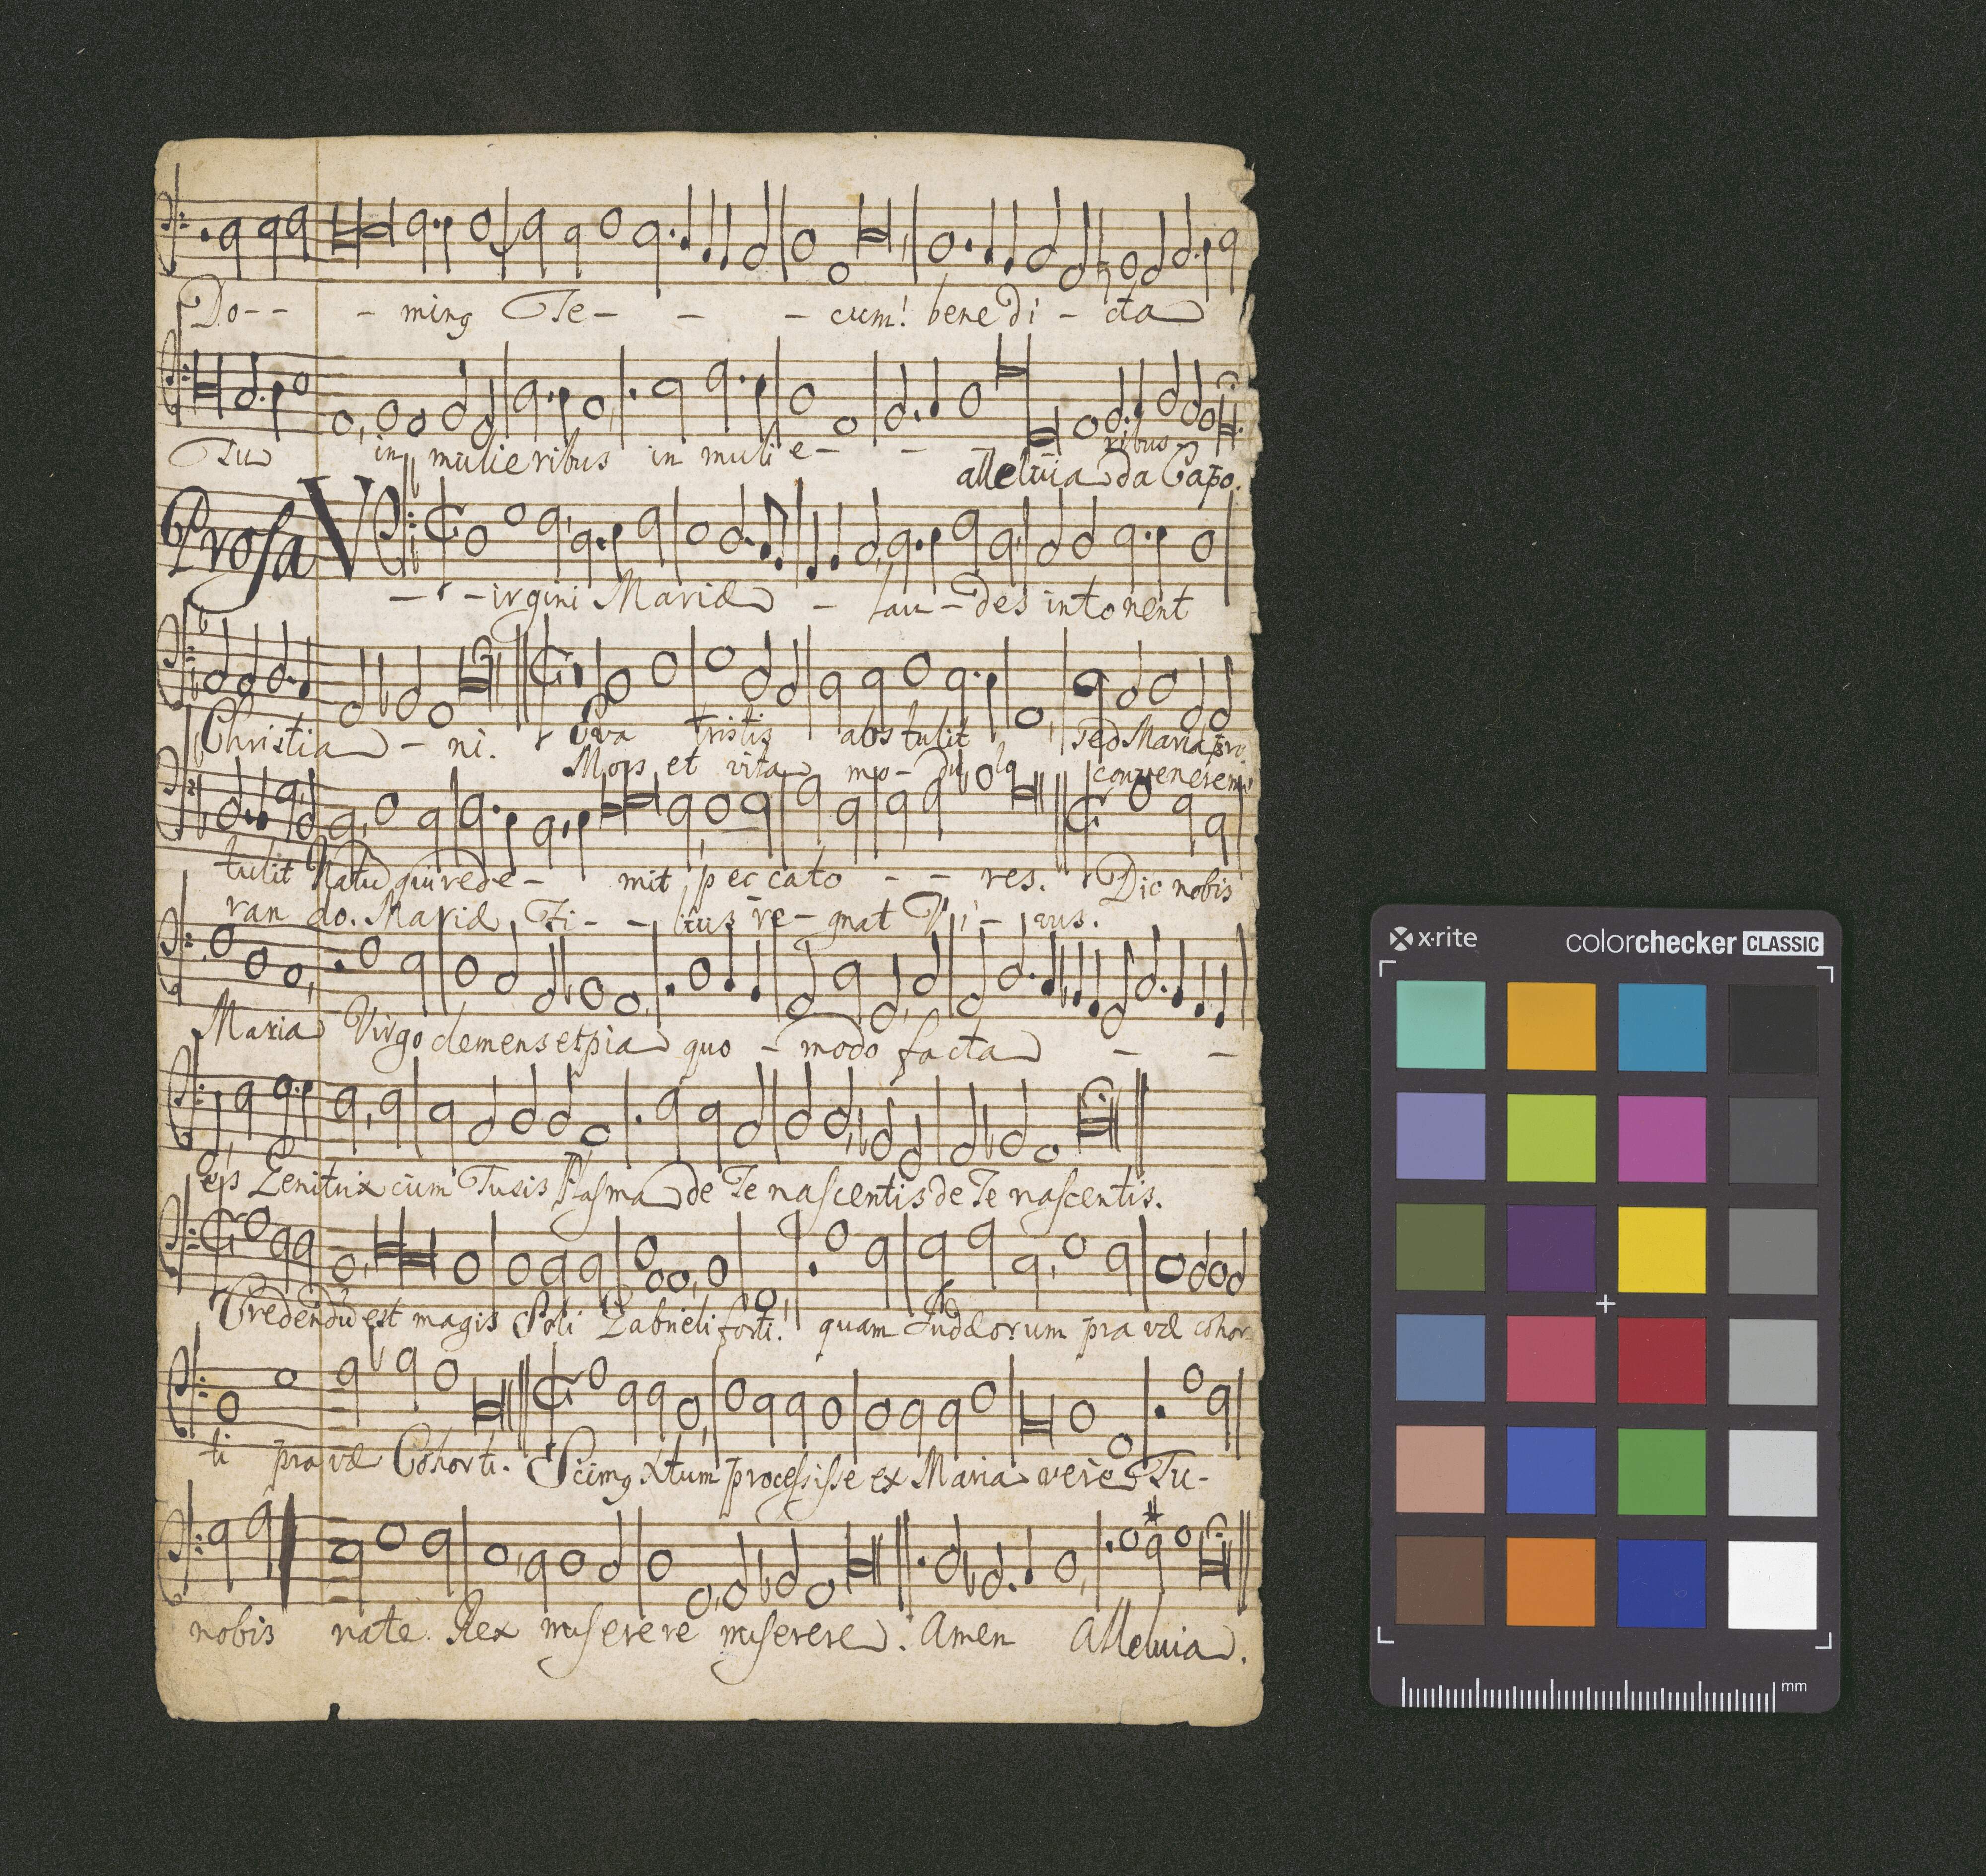 Do - - - ming Te - - - cum! bene di - cta
Tu in mulieribus in muli e - - ribus
alleluia da Capo.
Prosa V
- - irgini Mariæ - lau - des intonent
Christia - ni. Eva tristis abs tulit sed Maria pro
Mors et vita mo - du la convenerem
tulit Natū qui rede - mit peccato - - res. Dic nobis
ran do. Mariæ Fi - - lius re - gnat Vi - vus.
Maria Virgo clemens et pia quo - modo facta - -
es Genitrix cum Tu sis Plasma de Te nascentis de Te nascentis.
Credendū est magis Soli Gabrieli forti. quam Judæorum pra væ cohor
ti pra væ Cohorti. Scimg Xtum processisse ex Maria vere Tu -
nobis nate Rex miserere miserere. Amen Alleluia.
x·rite colorchecker CLASSIC
mm